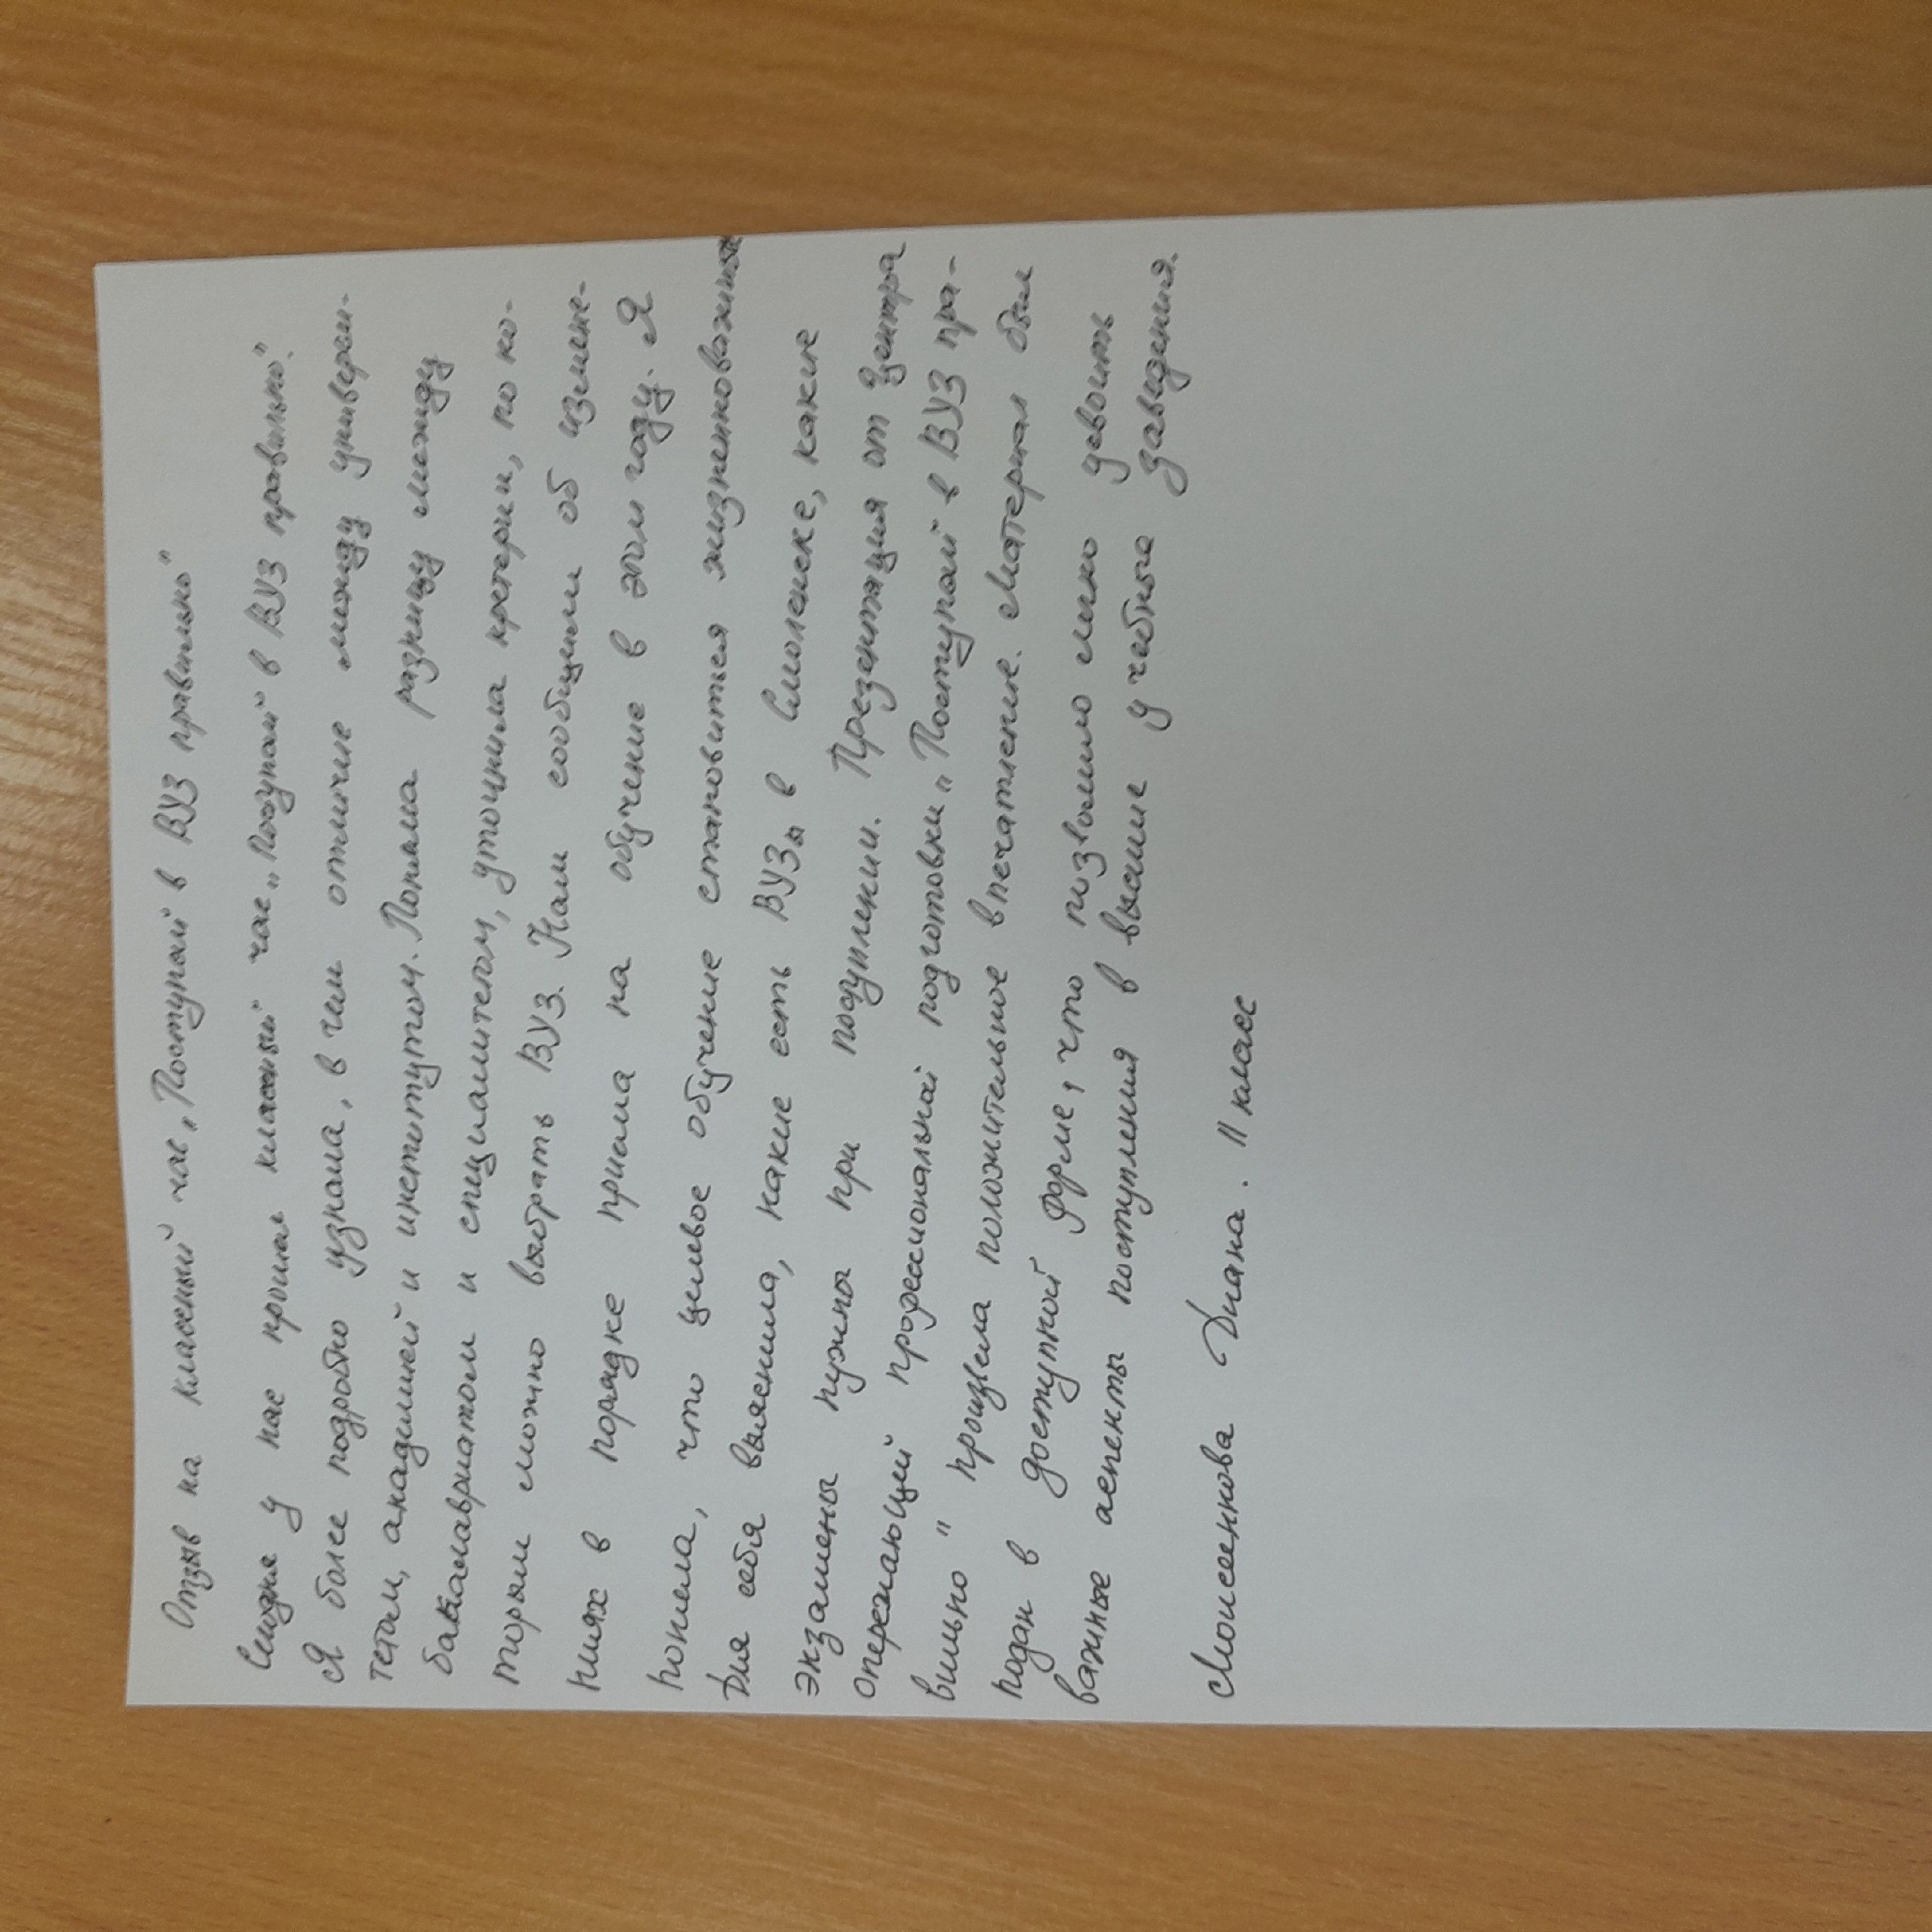 Отзыв на класеный час „Поступай в ВУЗ правильно"
у нас прошел класеный час „Поступай" в ВУЗ правильно".
Я более подробно узнала, в чем отличие между универси-
тетом, академией и институтом. Поняла разницу между
бакалавриатом и специалитетом, уточнила кретерии, по ко-
торым можно выбрать ВУЗ. Нам сообщили об измене-
ниях в порядке приема на обучение в этом году. Я
поняла, что целевое обучение становится
Для себя выяснила, какие есть ВУЗы в Смоленске, какие
экзамены нужны при поступлении. Презентация от Центра
опережающий профессиональной подготовки „Поступай в ВУЗ пра-
вильно" произвела положительное впечатление. Материал был
подан в доступной форме, что позволило легко усвоить
важные аспекты поступления в высшие учебные заведения.
Моисеенкова Диана. 11 класс